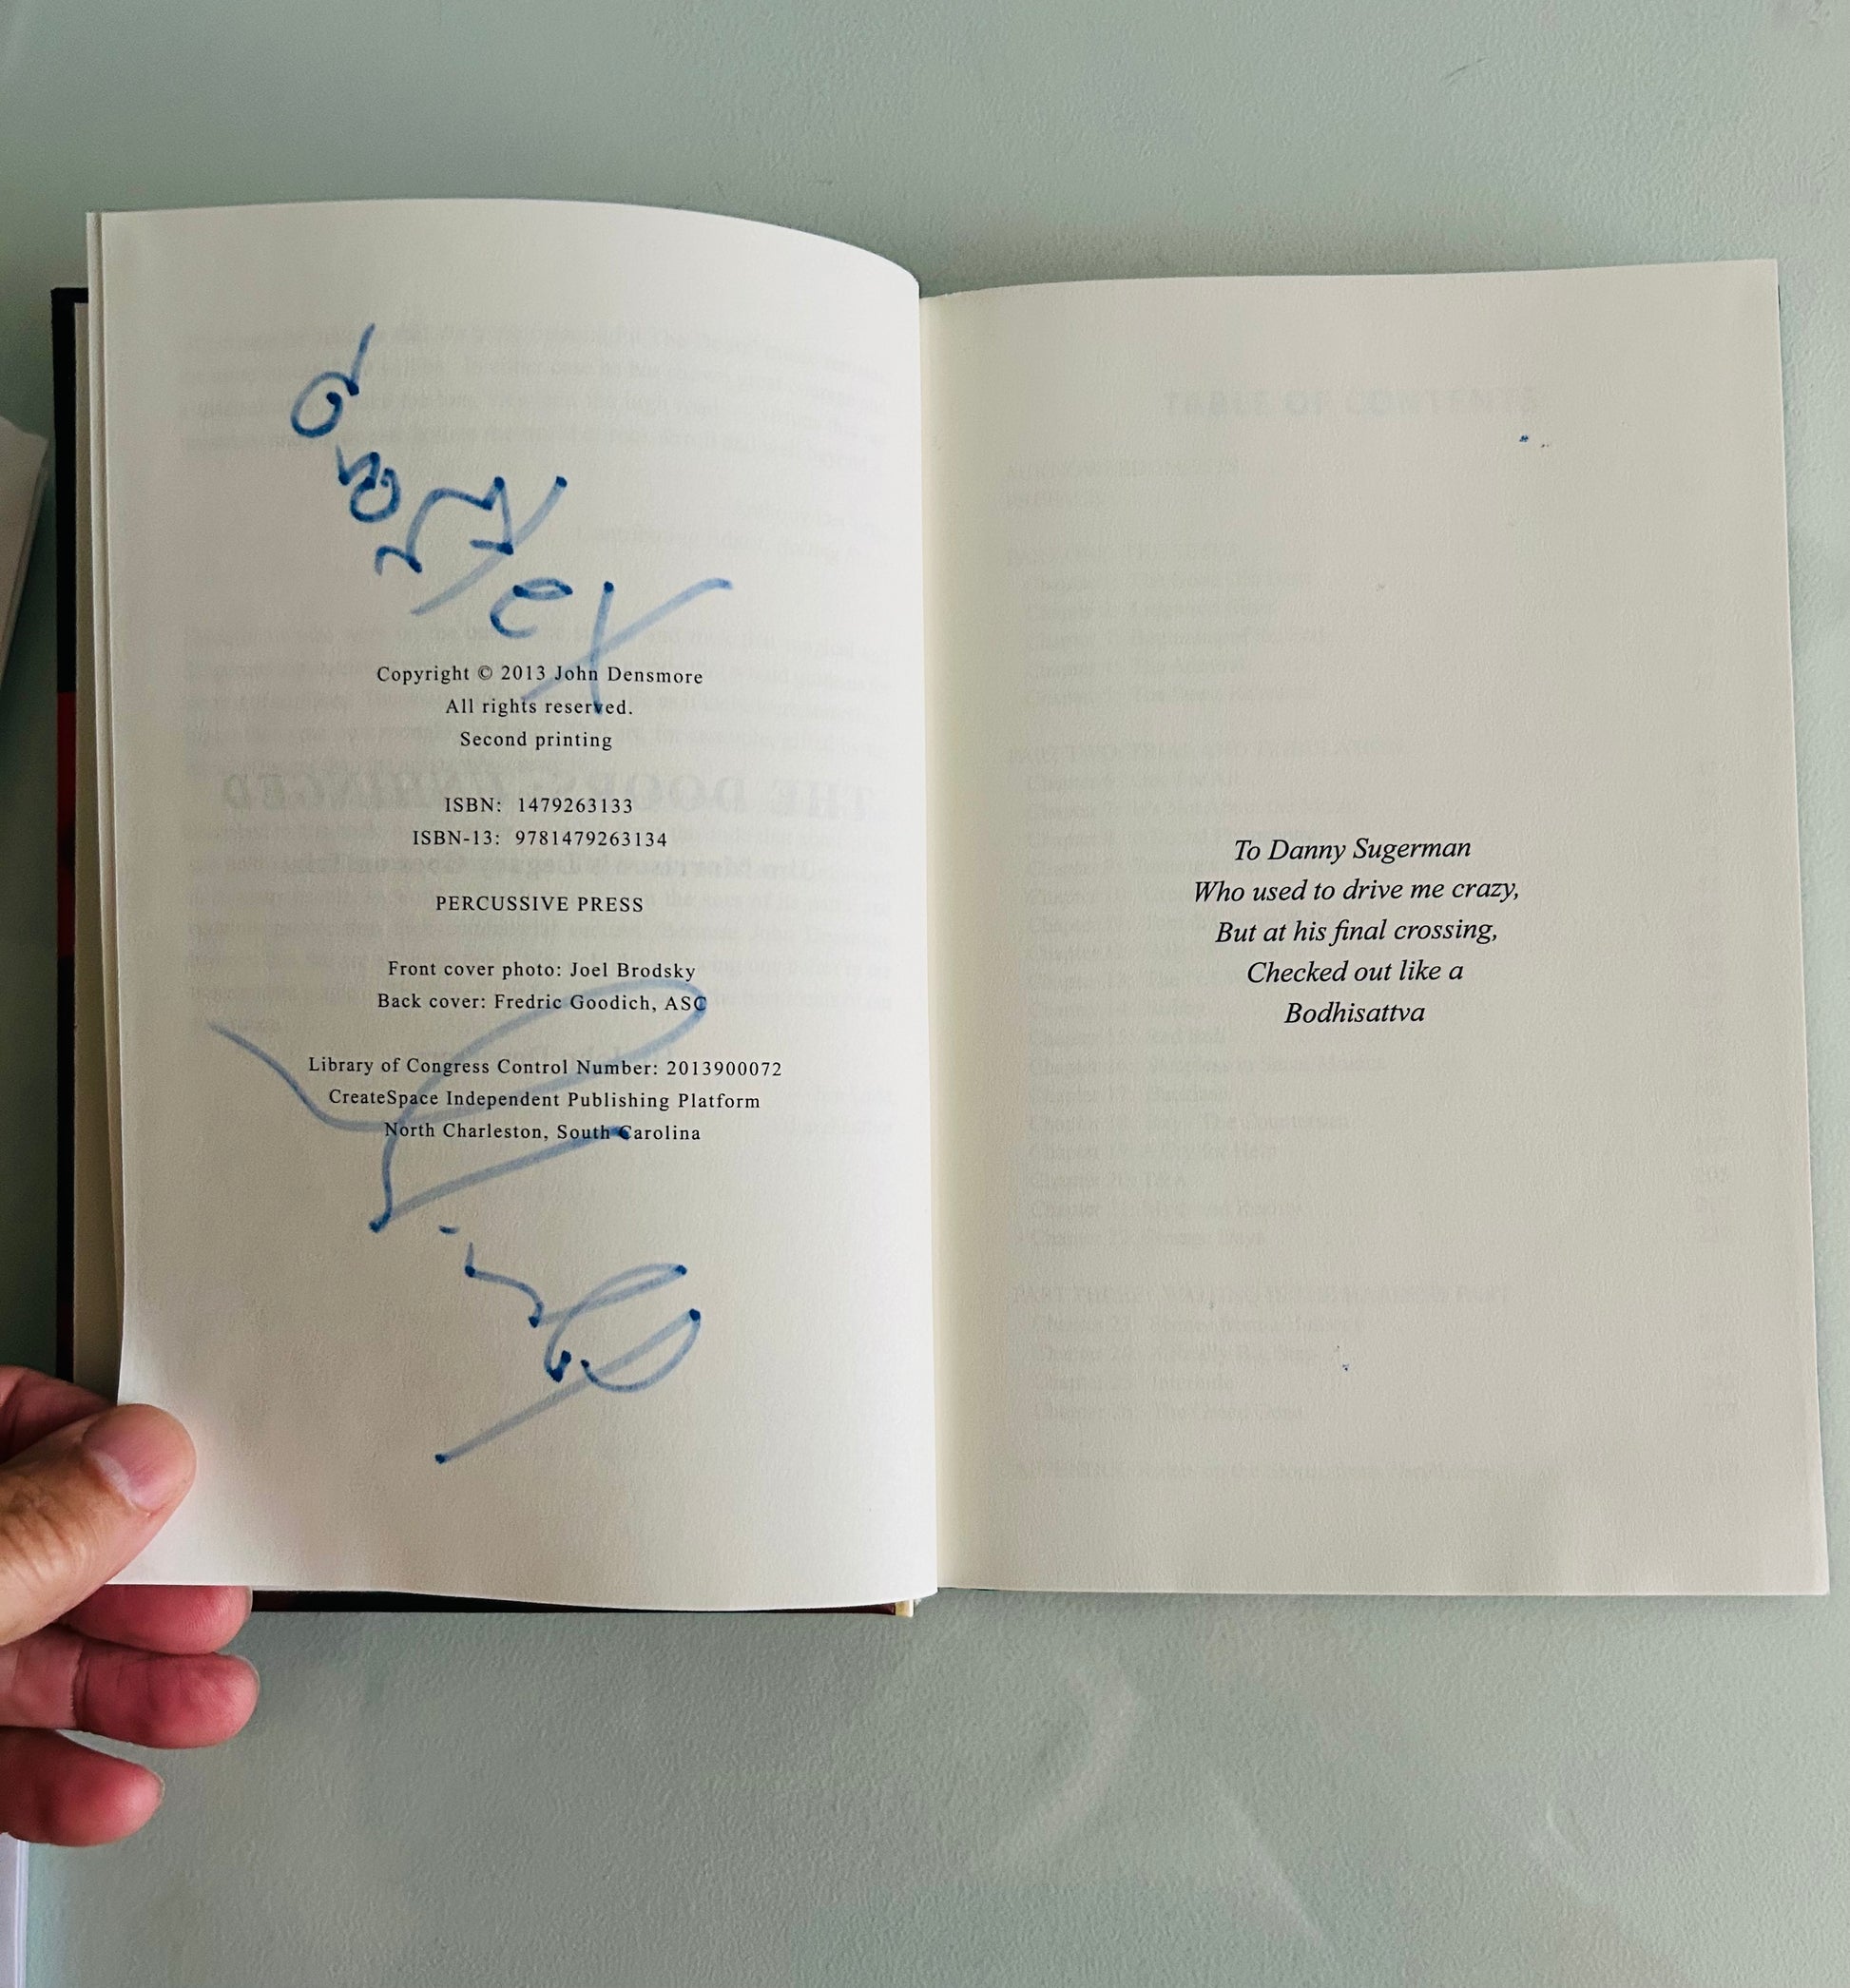 Copyright © 2013 John Densmore
All rights reserved.
Second printing
ISBN: 1479263133
ISBN-13: 9781479263134
PERCUSSIVE PRESS
Front cover photo: Joel Brodsky
Back cover: Fredric Goodich, ASC
Library of Congress Control Number: 2013900072
CreateSpace Independent Publishing Platform
North Charleston, South Carolina
To Danny Sugerman
Who used to drive me crazy,
But at his final crossing,
Checked out like a
Bodhisattva